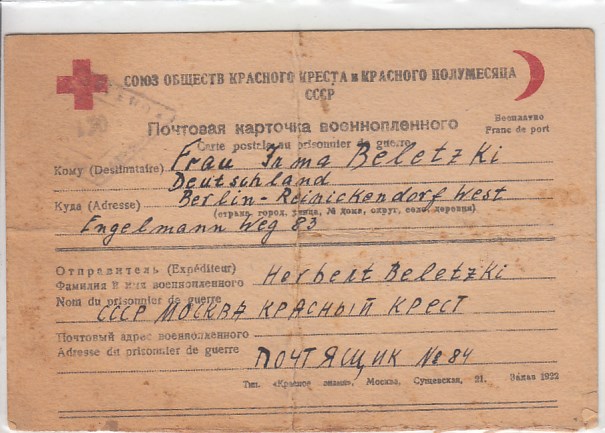 СОЮЗ ОБЩЕСТВ КРАСНОГО КРЕСТА и КРАСНОГО ПОЛУМЕСЯЦА
СССР
Бесплатно
Franc de port
Почтовая карточка военнопленного
Carte postale au prisonnier de guerre
Кому (Destinataire) Frau Irma Beletzki
Deutschland
Куда (Adresse) Berlin-Reinickendorf West
(страна, город, улица, № дома, округ, село, деревня)
Engelmann Weg 83
Отправитель (Expéditeur)
Фамилия и имя военнопленного Herbert Beletzki
Nom du prisonnier de guerre
СССР МОСКВА КРАСНЫЙ КРЕСТ
Почтовый адрес военнопленного
Adresse du prisonnier de guerre ПОЧТЯЩИК № 84
Тип. «Красное знамя», Москва, Сущевская, 21. Заказ 1922